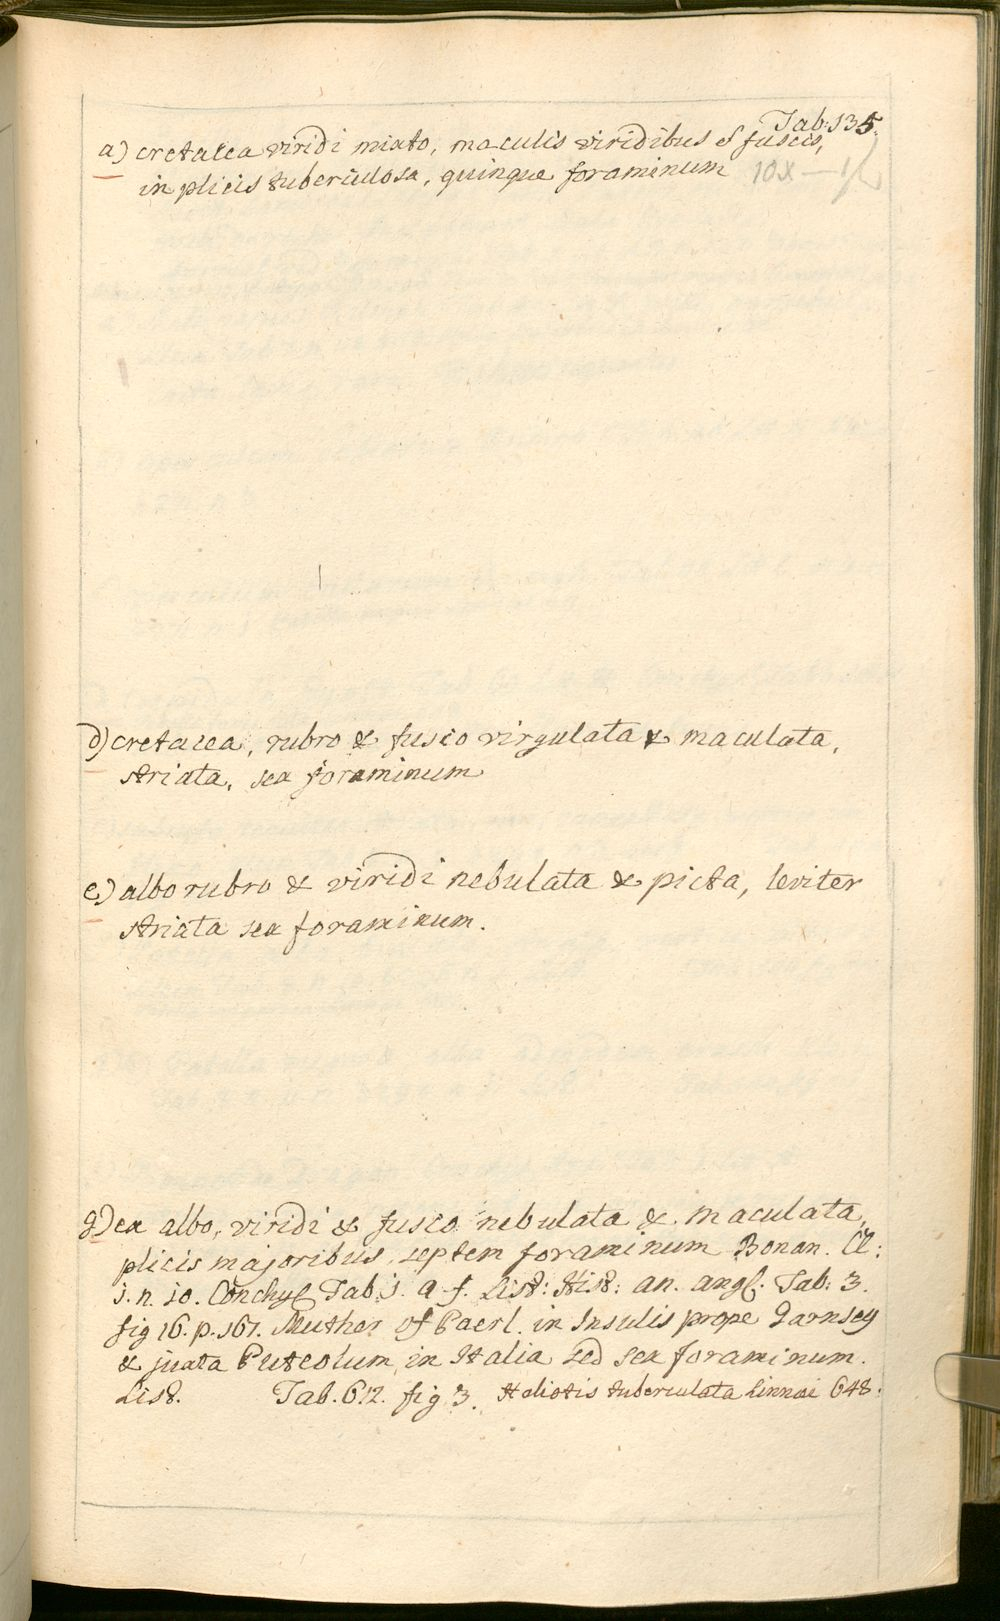 Tab: 135.
a) cretacea viridi mixto, maculis viridibus & fuscis,
in plicis tuberculosa, quinque foraminum 10x
d) cretacea, rubro & fusco virgulata & maculata,
striata, sex foraminum
e) albo rubro & viridi nebulata & picta, leviter
striata sex foraminum.
g) ex albo, viridi & fusco nebulata & maculata,
plicis majoribus, septem foraminum Bonan. Cl:
1. n. 10. Conchyl Tab 1. 9. f. List: Hist: an. angl. Tab: 3.
fig 16. p. 167. Muther of Paerl. in Insulis prope Garnsey
& juxta Puteolum in Italia sed sex foraminum.
List. Tab. 612. fig 3. Haliotis tuberculata Linnai 648.